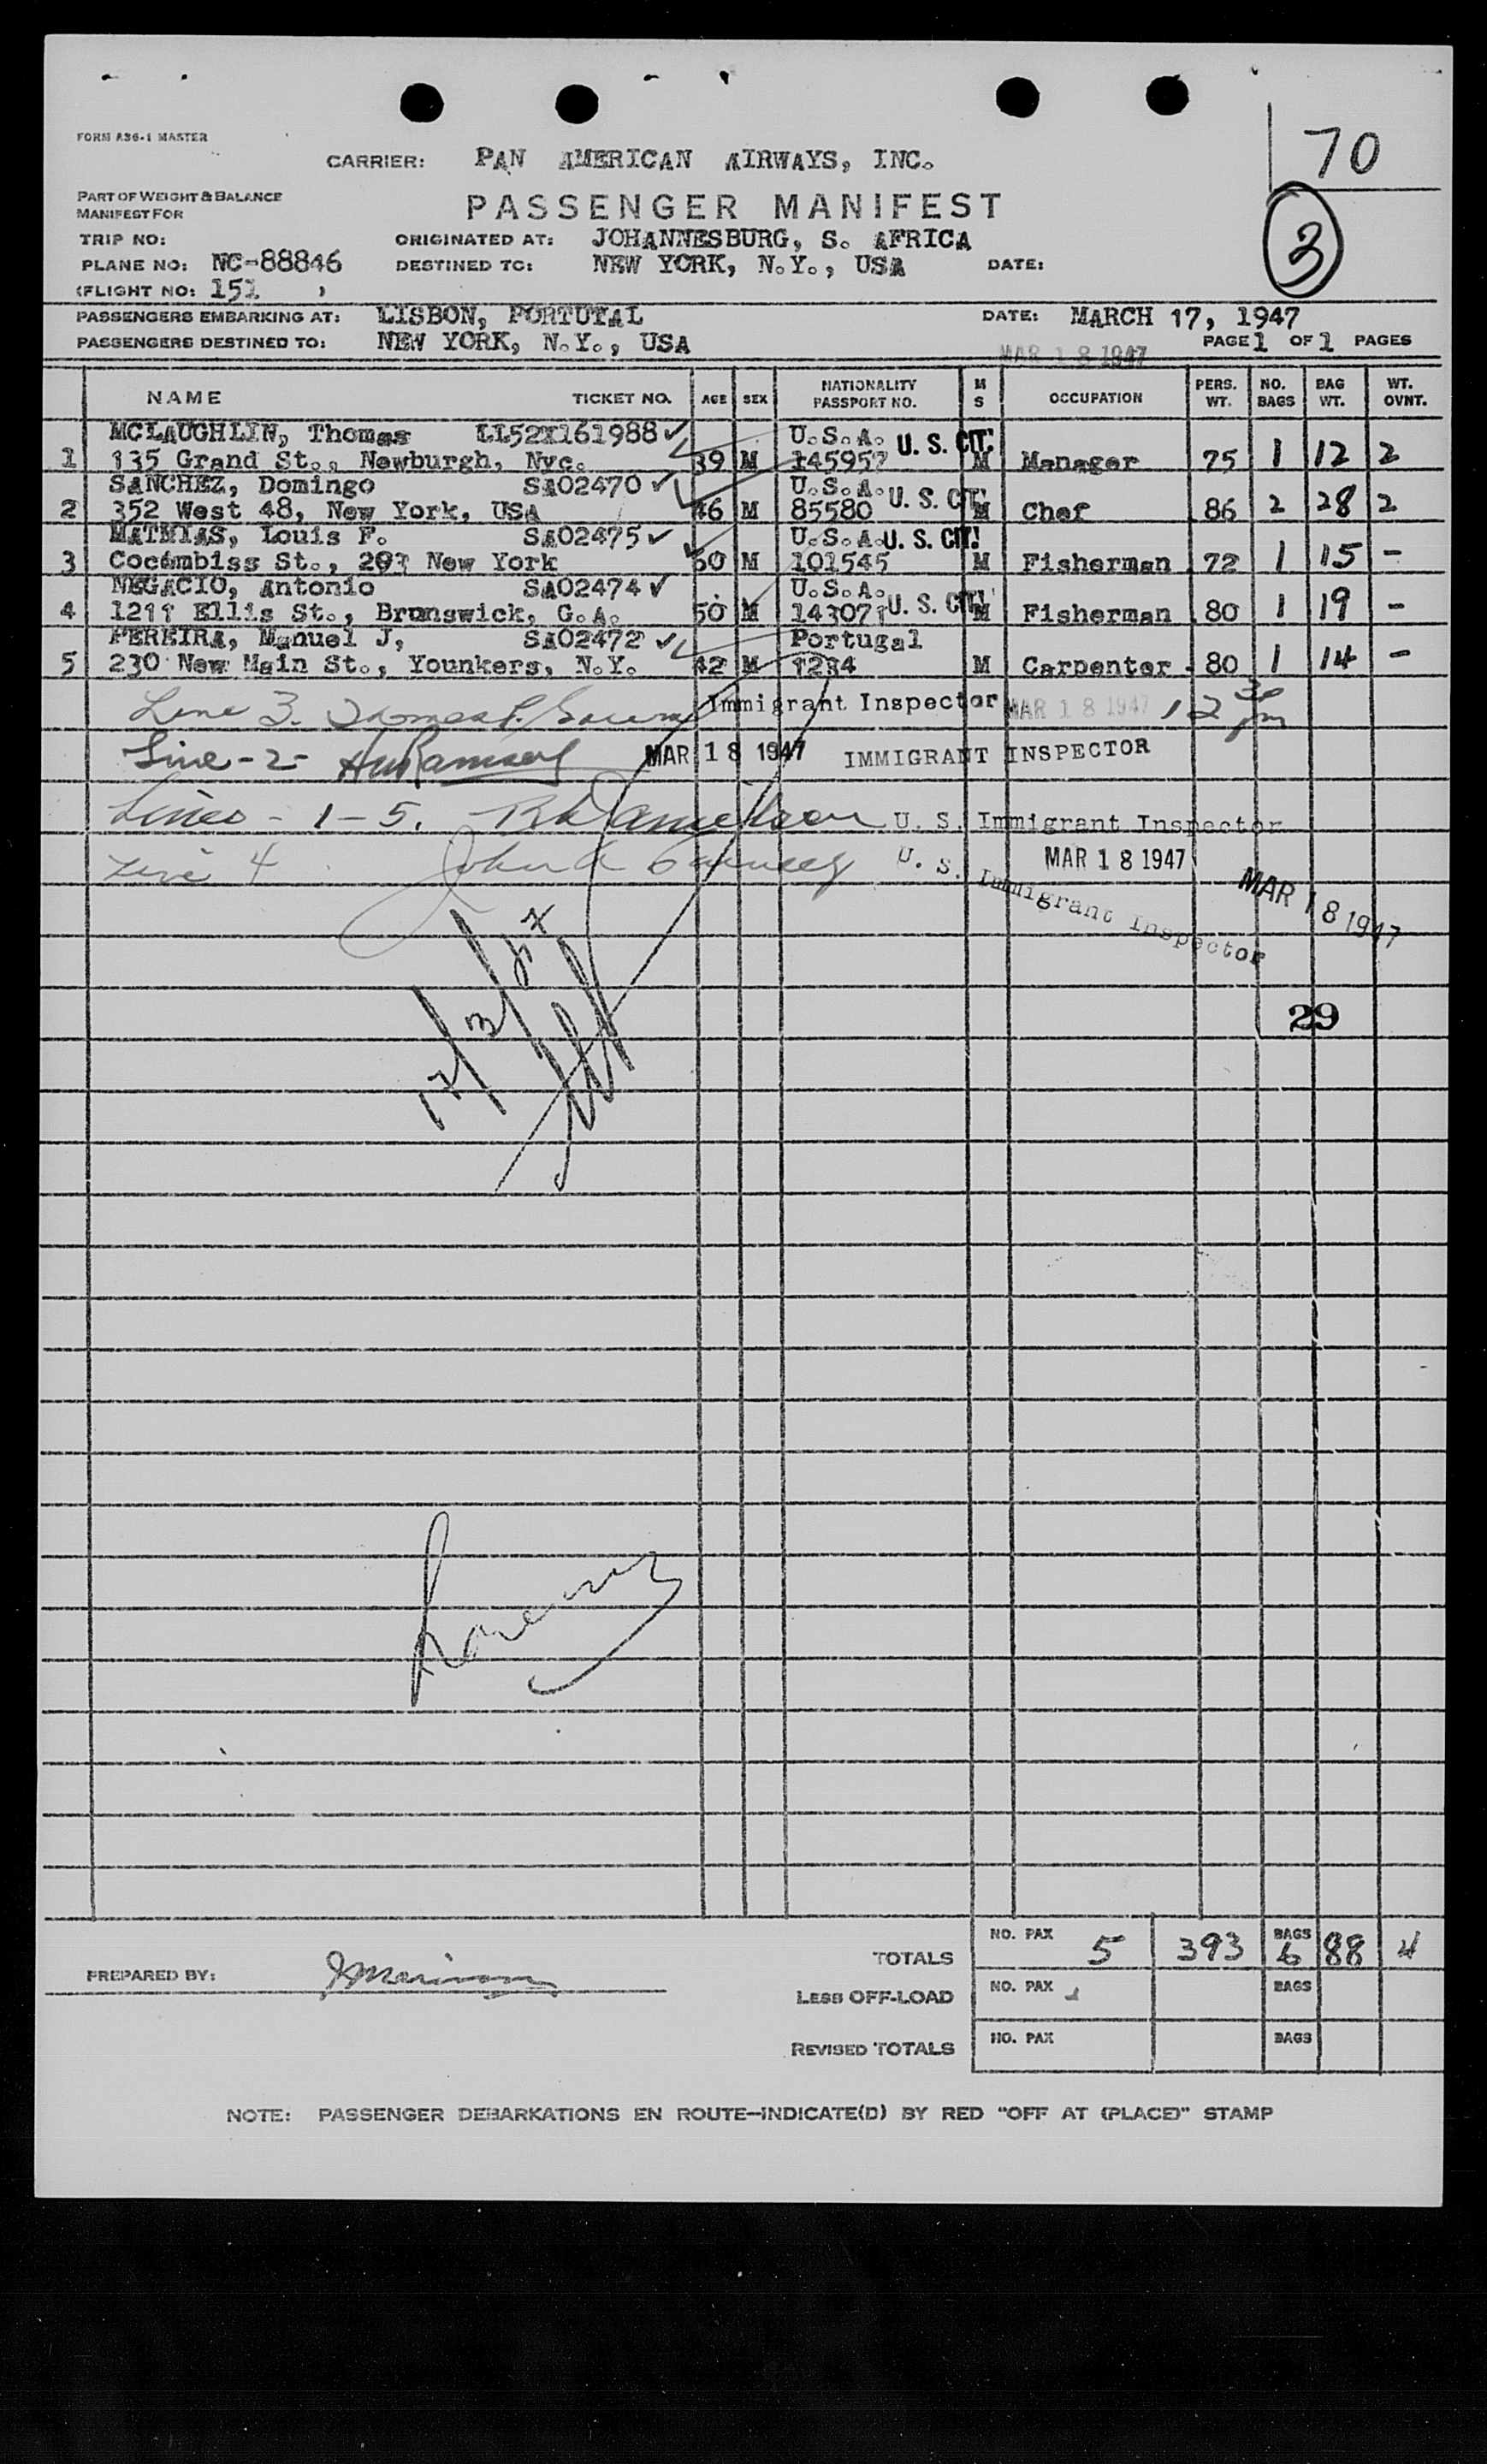 70
FORM A36-1 MASTER
CARRIER: PAN AMERICAN AIRWAYS, INC.
PART OF WEIGHT & BALANCE
MANIFEST FOR
PASSENGER MANIFEST
3
TRIP NO:
ORIGINATED AT: JOHANNESBURG, S. AFRICA
PLANE NO: NC-88846
DESTINED TO: NEW YORK, N.Y., USA DATE:
(FLIGHT NO: 151 )
PASSENGERS EMBARKING AT: LISBON, PORTUTAL DATE: MARCH 17, 1947
PASSENGERS DESTINED TO: NEW YORK, N.Y., USA MAR 18 1947 PAGE 1 OF 1 PAGES
NAME TICKET NO. AGE SEX NATIONALITY PASSPORT NO. M S OCCUPATION PERS. WT. NO. BAGS BAG WT. WT. OVNT.
MCLAUGHLIN, Thomas LL52X161988 U.S.A. U. S. CIT.
1 135 Grand St., Newburgh, Nyc. 39 M 145957 M Manager 75 1 12 2
SANCHEZ, Domingo SA02470 U.S.A. U. S. CIT.
2 352 West 48, New York, USA 46 M 85580 M Chef 86 2 28 2
MATHIAS, Louis F. SA02475 U.S.A. U. S. CIT.
3 St., New York 50 M 101545 M Fisherman 72 1 15 -
NEGACIO, Antonio SA02474 U.S.A. U. S. CIT.
4 1211 Ellis St., Brunswick, G.A. 50 M 143071 M Fisherman 80 1 19 -
PEREIRA, Manuel J, SA02472 Portugal
5 230 New Main St., Younkers, N.Y. 42 M 1234 M Carpenter 80 1 14 -
Line 3. Thomas Immigrant Inspector MAR 18 1947 12 30 pm
Line - 2 - Ramsey MAR 18 1947 IMMIGRANT INSPECTOR
Lines - 1 - 5. U. S. Immigrant Inspector
Line 4 John U. S. Immigrant Inspector
MAR 18 1947
MAR 18 1947
17/3/47
29
TOTALS NO. PAX 5 393 BAGS 6 88 4
PREPARED BY:
LESS OFF-LOAD NO. PAX BAGS
REVISED TOTALS NO. PAX BAGS
NOTE: PASSENGER DEBARKATIONS EN ROUTE—INDICATE(D) BY RED "OFF AT (PLACE)" STAMP